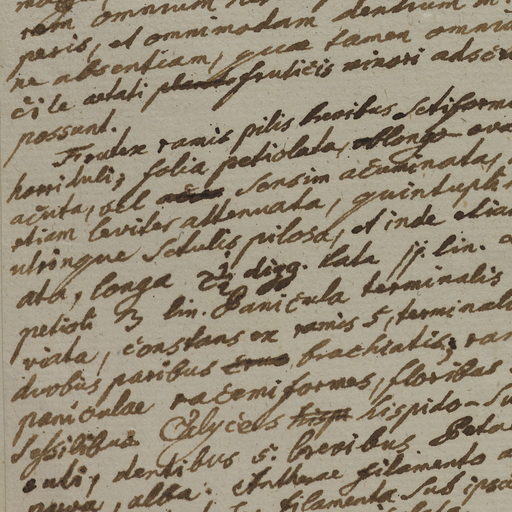 rem omnium
peris, et omnimodam dentium in
ne absentiam, quae tamen omnia
cile aetati planta fruticis minori adscr
possunt.
Frutex ramis pilis brevibus setiform
horriduli; folia petiolata, oblongo ova
acuta, vel sensim acuminata,
etiam leviter attenuata, quintupli
utrinque setulis pilosa, et inde etia
ata, longa 2½ digg. lata 11. lin.
petioli 3 lin. Panicula terminalis
viata, constans ex ramis 5, terminal
duobus paribus brachiatis; ra
paniculae racemiformes, floribus
sessilibus Calyces hispido-su
enti, dentibus 5. brevibus Peta
nova, alba. Antherae filamento
filamenta sub ipsa